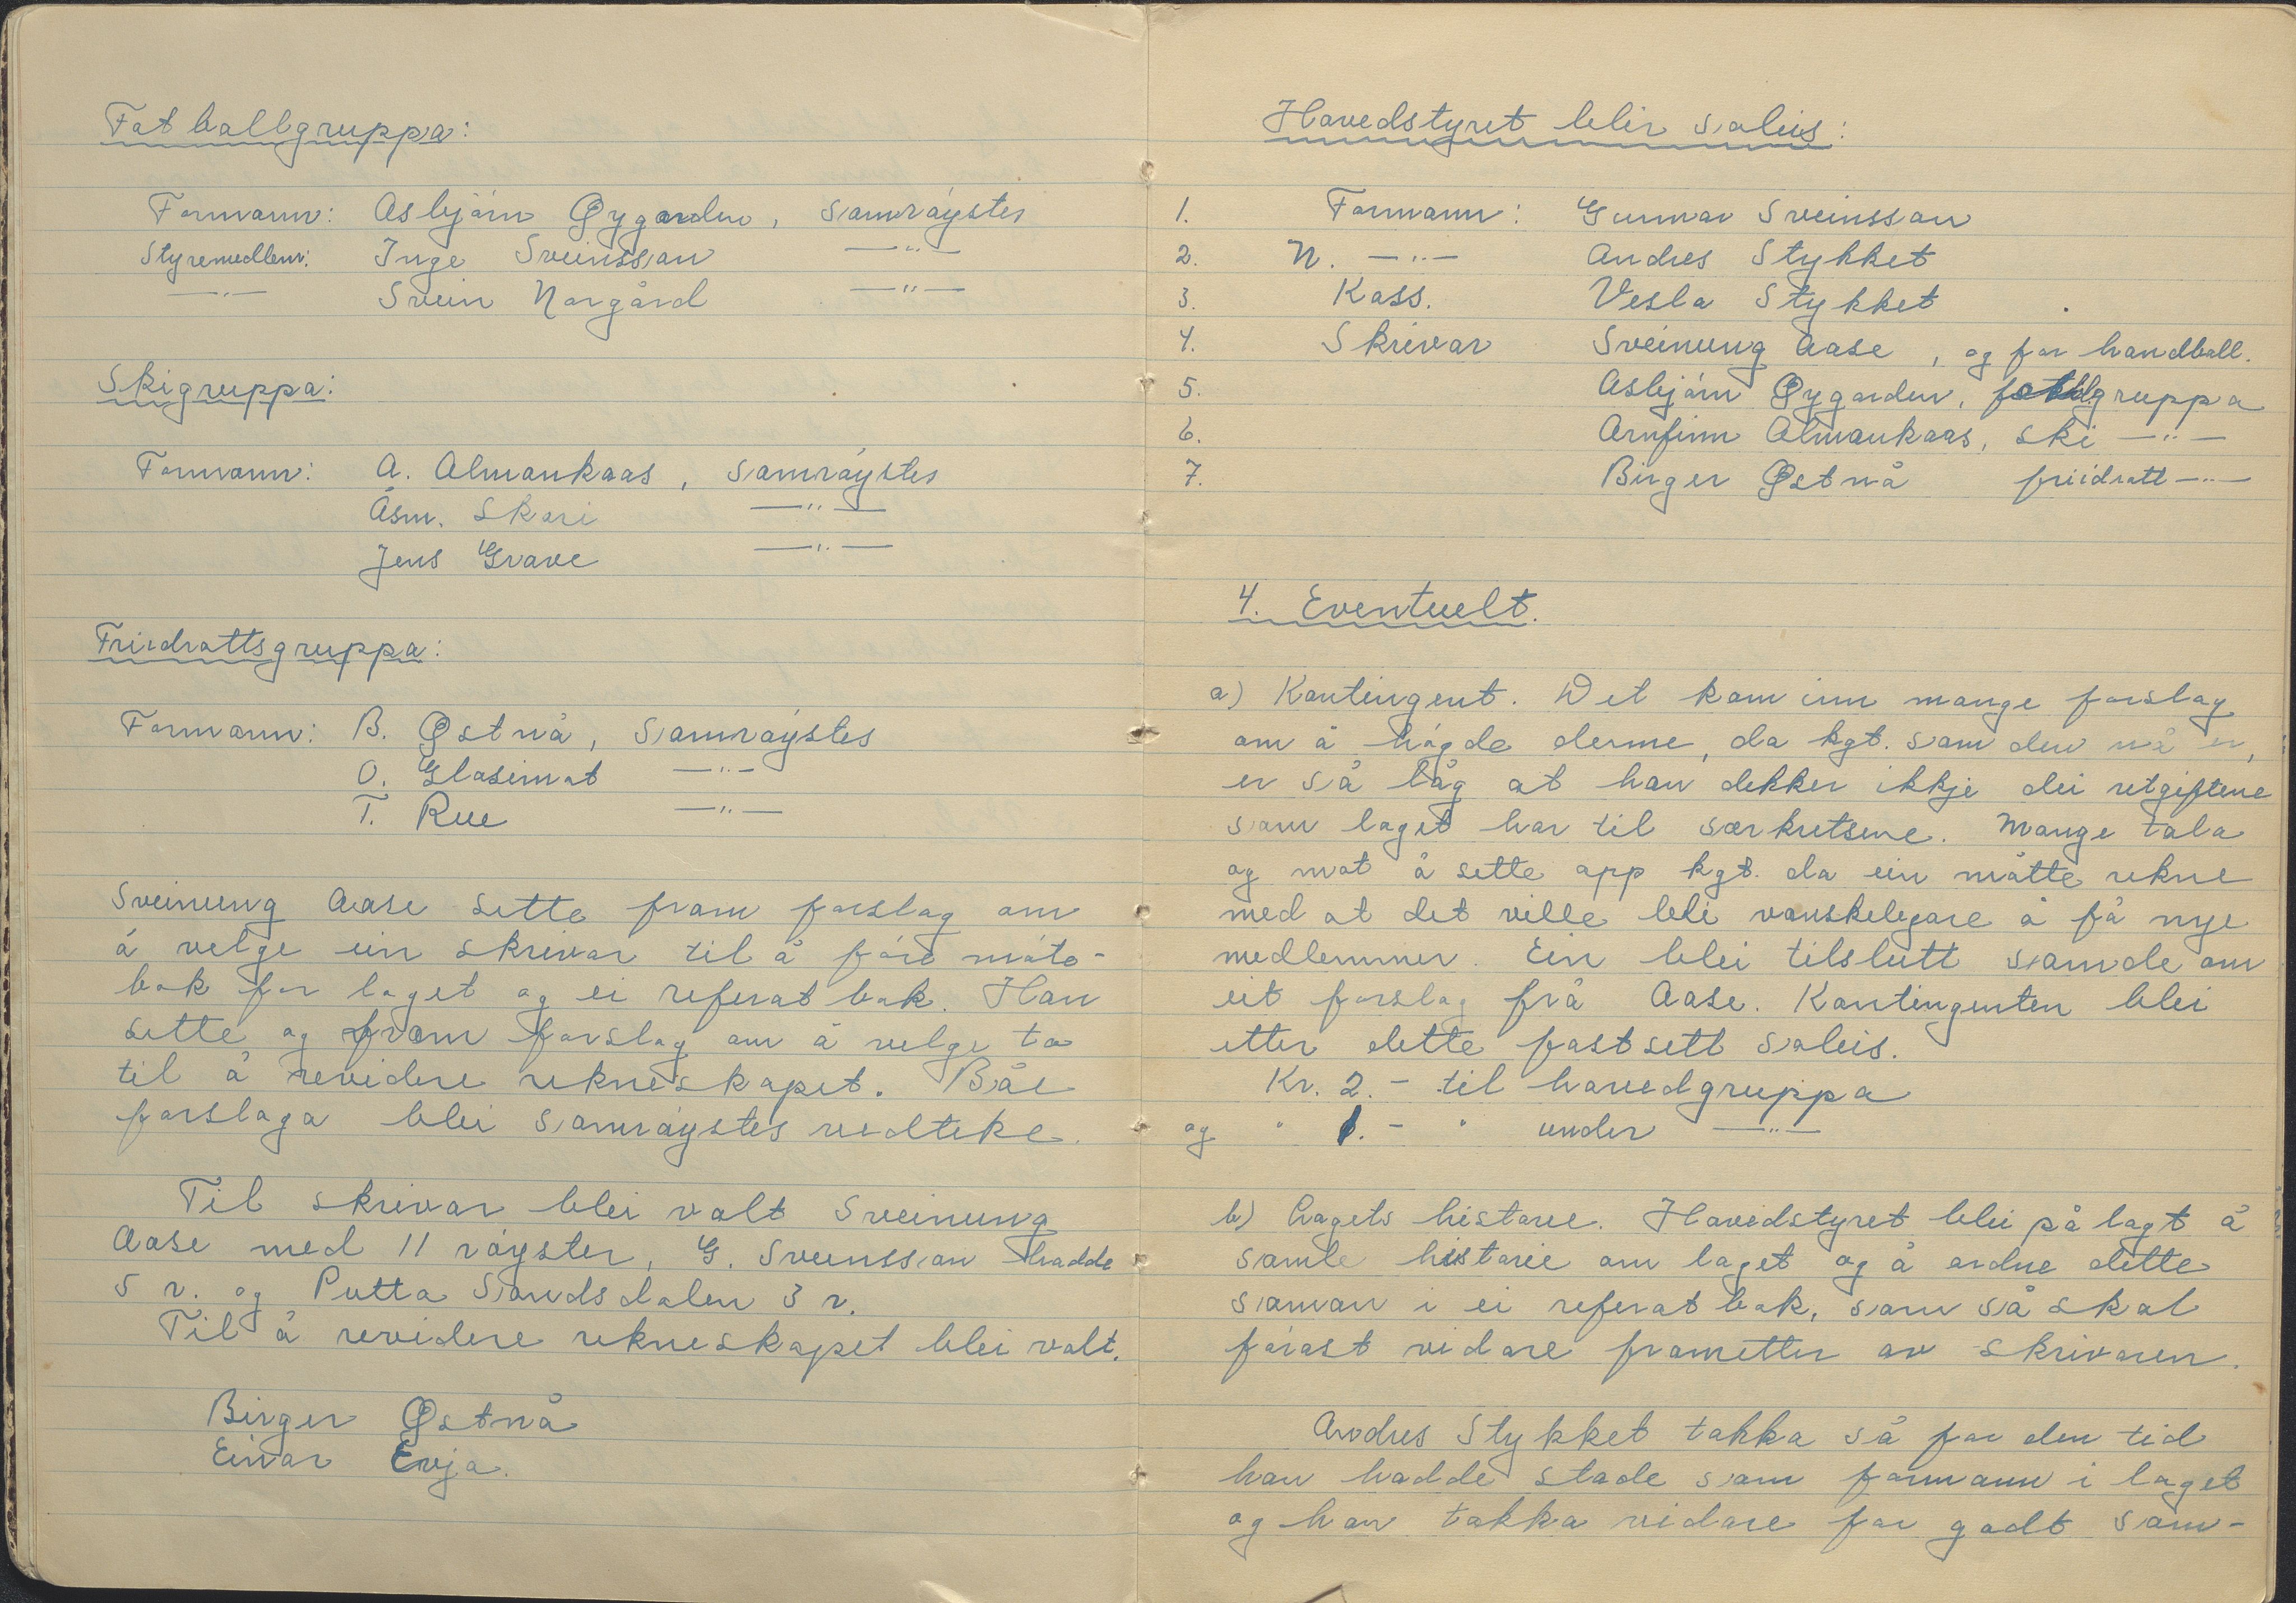 Fotballgruppa:
Formann: Asbjørn Øygarden, samrøystes
Styremedlem: Inge Sveinsson —"—
—"— Svein Norgård —"—
Skigruppa:
Formann: A. Almankaas, samrøystes
Åsm. Skari —"—
Jens Grave —"—
Friidrattsgruppa:
Formann: B. Østnå, samrøystes
O. Glosimot —"—
T. Rue —"—
Sveinung Aase sette fram forslag om
å velge ein skrivar til å føre møte-
bok for laget og ei referat bok. Han
sette og fram forslag om å velge to
til å revidere rekneskapet. Båe
forslaga blei samrøystes vedteke.
Til skrivar blei valt Sveinung
Aase med 11 røyster, G. Sveinsson hadde
5 r. og Putta Sandsdalen 3 r.
Til å revidere rekneskapet blei valt.
Birger Østnå
Einar Evja.
Hovedstyret blir soleis:
1. Formann: Gunnar Sveinsson
2. N. —"— Andres Stykket
3. Kass. Vesla Stykket
4. Skrivar Sveinung Aase, og for handball.
5. Asbjørn Øygarden, fotblgruppa
6. Arnfinn Almankaas, ski —"—
7. Birger Østnå friidratt —"—
4. Eventuelt.
a) Kontingent. Det kom inn mange forslag
om å høgde denne, da kgt. som den nå er,
er så låg at han dekker ikkje dei utgiftene
som laget har til særkretsene. Mange tala
og mot å sette opp kgt. da ein måtte rekne
med at det ville bli vanskelegare å få nye
medlemmer. Ein blei tilslutt samde om
eit forslag frå Aase. Kontingenten blei
etter dette fastsett soleis.
Kr. 2.- til hovedgruppa
og " 1.- " under —"—
b) Lagets historie. Hovedstyret blei på lagt å
samle historie om laget og å ordne dette
saman i ei referat bok, som så skal
førast vidare frametter av skrivaren.
Andres Stykket takka så for den tid
han hadde stade som formann i laget
og han takka vidare for godt sam-